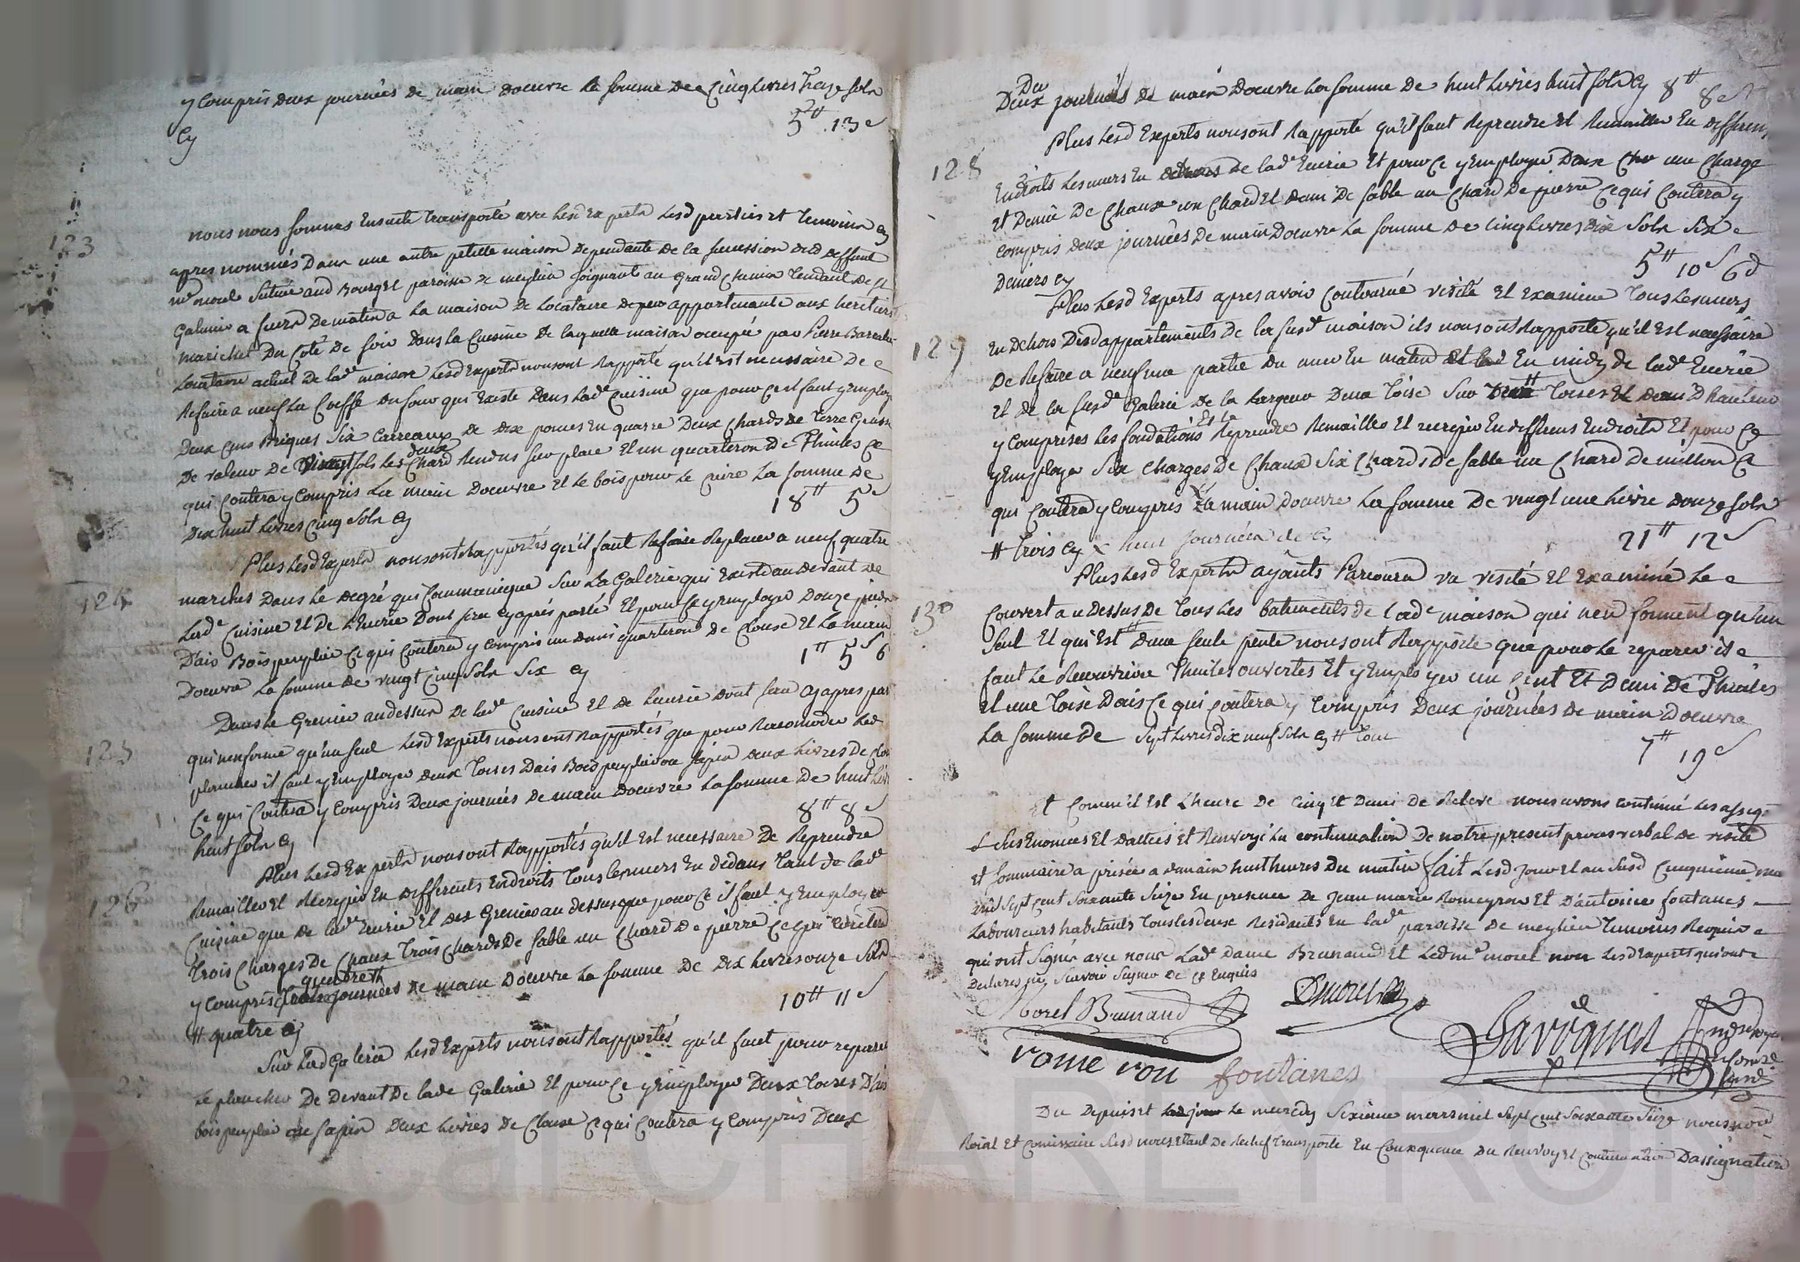 y Compris deux journées de main doeuvre la somme de Cinq livres Treize sols
Cy
5ᵗᵗ 13ˢ
123
nous nous sommes Ensuite Transporté avec lesd Experts lesd parties et temoins Cy
apres nommés Dans une autre petitte maison dependante de la succession dud deffunt
mᵉ morel situee aud Bourg et paroisse de meylieu joignant au Grand Chemin tendant de sᵗ
Galmier a feurs de matin a la maison de Locataire depuis appartenante aux heritiers
marichel Du Coté de soir dans la Cuisine de laquelle maison occupée par Pierre
Locataire actuel de ladᵉ maison lesd Experts nous ont Rapporté qu'il est necessaire de
Refaire a neuf la Coeffe du four qui Existe dans ladᵉ Cuisine que pour ce il faut y Employer
Deux Cens Briques Six Carreaux de dix pouces En quarré Deux Chards de Terre Grasse
De valeur de Vingt sols les deux Chard Rendus sur place Et un quarteron de Thuiles Ce
qui Coutera y Compris La main Doeuvre et le bois pour le Cuire La somme de
Dix huit Livres Cinq sols Cy
18ᵗᵗ 5ˢ
124
Plus lesd Experts nous ont Rapportés qu'il faut Refaire Replacer a neuf quatre
marches Dans le degré qui Communique sur la Galerie qui Existe au devant de
Ladᵉ Cuisine Et de l'Ecurie Dont sera Cy apres parlé Et pour Ce y Employer Douze pieds
D'ais Bois peuplier Ce qui Coutera y Compris un demi quarteron de Clouse Et La main
Doeuvre La somme de vingt Cinq Sols Six Cy
1ᵗᵗ 5ˢ 6
125
Dans le Grenier audessus de ladᵉ Cuisine Et de l'ecurie dont sera Cy apres par
qui n'en forme qu'un seul Lesd Experts nous ont Rapportés que pour Racomoder led
plancher il faut y Employer deux Toises Dais Bois peuplier ou sapin deux Livres de Clou
Ce qui Coutera y Compris Deux journées de main Doeuvre La somme de huit Liv
huit sols Cy
8ᵗᵗ 8ˢ
126
Plus Lesd Experts nous ont Rapportés qu'il est necessaire de Reprendre
Remailler et Recrepir En differents Endroits Tous les murs En dedans Tant de ladᵉ
Cuisine que de ladᵉ Ecurie Et des Greniers au dessus que pour Ce il faut y Employer
Trois Charges de Chaux Trois Chards de sable un Chard de pierre Ce qui Coutera
y Compris quatre Trois journées de main Doeuvre La somme de Dix Livres onze Sols
# quatre Cy
10ᵗᵗ 11ˢ
Sur lad Galerie Lesd Experts nous ont Rapportés qu'il faut pour reparer
le plancher De devant De ladᵉ Galerie Et pour Ce y Employer Deux Toises Dais
bois peuplier ou sapin Deux Livres de Clouse Ce qui Coutera y Compris Deux
Deux journées de main Doeuvre La somme de huit Livres huit sols Cy 8ᵗᵗ 8ˢ
128
Plus Lesd Experts nous ont Rapporté qu'il faut Reprendre Et Remailler En differens
Endroits Les murs En dehors de ladᵉ Ecurie Et pour Ce y Employer une Charge
et Demie De Chaux un Chard Et Demi De sable un Chard De pierre Ce qui Coutera y
Compris deux journées de main Doeuvre La somme de Cinq Livres dix Sols Six
Deniers Cy
5ᵗᵗ 10ˢ 6ᵈ
129
Plus Lesd Experts apres avoir Contourné visité Et Examiné Tous Les murs
En Dehors Desd appartements De la susdᵉ maison ils nous ont Rapporté qu'il est necessaire
De Refaire a neuf une partie du mur En matin En midy de ladᵉ Ecurie
Et de la susdᵉ Galerie de la Largeur Deux Toise Sur Toises Et Demi D'hauteur
y Comprises Les fondations Et de Reprendre Remailler Et recrepir En differens Endroits Et pour Ce
y Employer Six Charges De Chaux Six Chards De sable un Chard De mission Ce
qui Coutera y Compris La main Doeuvre La somme De vingt une Livre douze sols
# trois Cy x huit journées de Cy
21ᵗᵗ 12ˢ
130
Plus Lesd Experts ayants Parcouru vu visité Et Examiné Le
Couvert au Dessus De Tous Les batiments de ladᵉ maison qui n'en forment qu'un
Seul Et qui Est D'une seule pente nous ont Rapporté que pour Le reparer il
faut Le Recouvrir a Thuiles ouvertes Et y Employer un Cent Et Demi De Thuiles
Et une Toise Dais Ce qui Coutera y Compris Deux journées De main Doeuvre
La somme De Sept Livres dix neuf sols Cy
7ᵗᵗ 19ˢ
Et Comm'il Est L'heure De Cinq Et Demi De Relevé nous avons Continué Les assig
Et Renvoyé La Continuation De notre present procès verbal De visite
Et Sommaire a prisée a demain huit heures Du matin fait Lesd jour Et an Susd Cinquieme mars
mil Sept Cent Soixante Seize En presence De Jean marie Romeyron Et D'antoine fontanes
Laboureurs habitants Tous Les deux Residents En ladᵉ paroisse De meylieu Temoins Requis
qui ont Signé avec nous Ladᵉ Dame Brunand Et Led mᵉ morel non Lesd Experts qui ont
Declarés ne Scavoir Signer De Ce Enquis
Morel Brunand
Dmorel
romeron
fontanes
Lavoignet
Du Depuis et Le mercredy Sixieme mars mil Sept Cent Soixante Seize nous
Roial Et Commissaire Susd nous Etant De Rechef transporté En Consequence Du Renvoy Et Continuation D'assignation